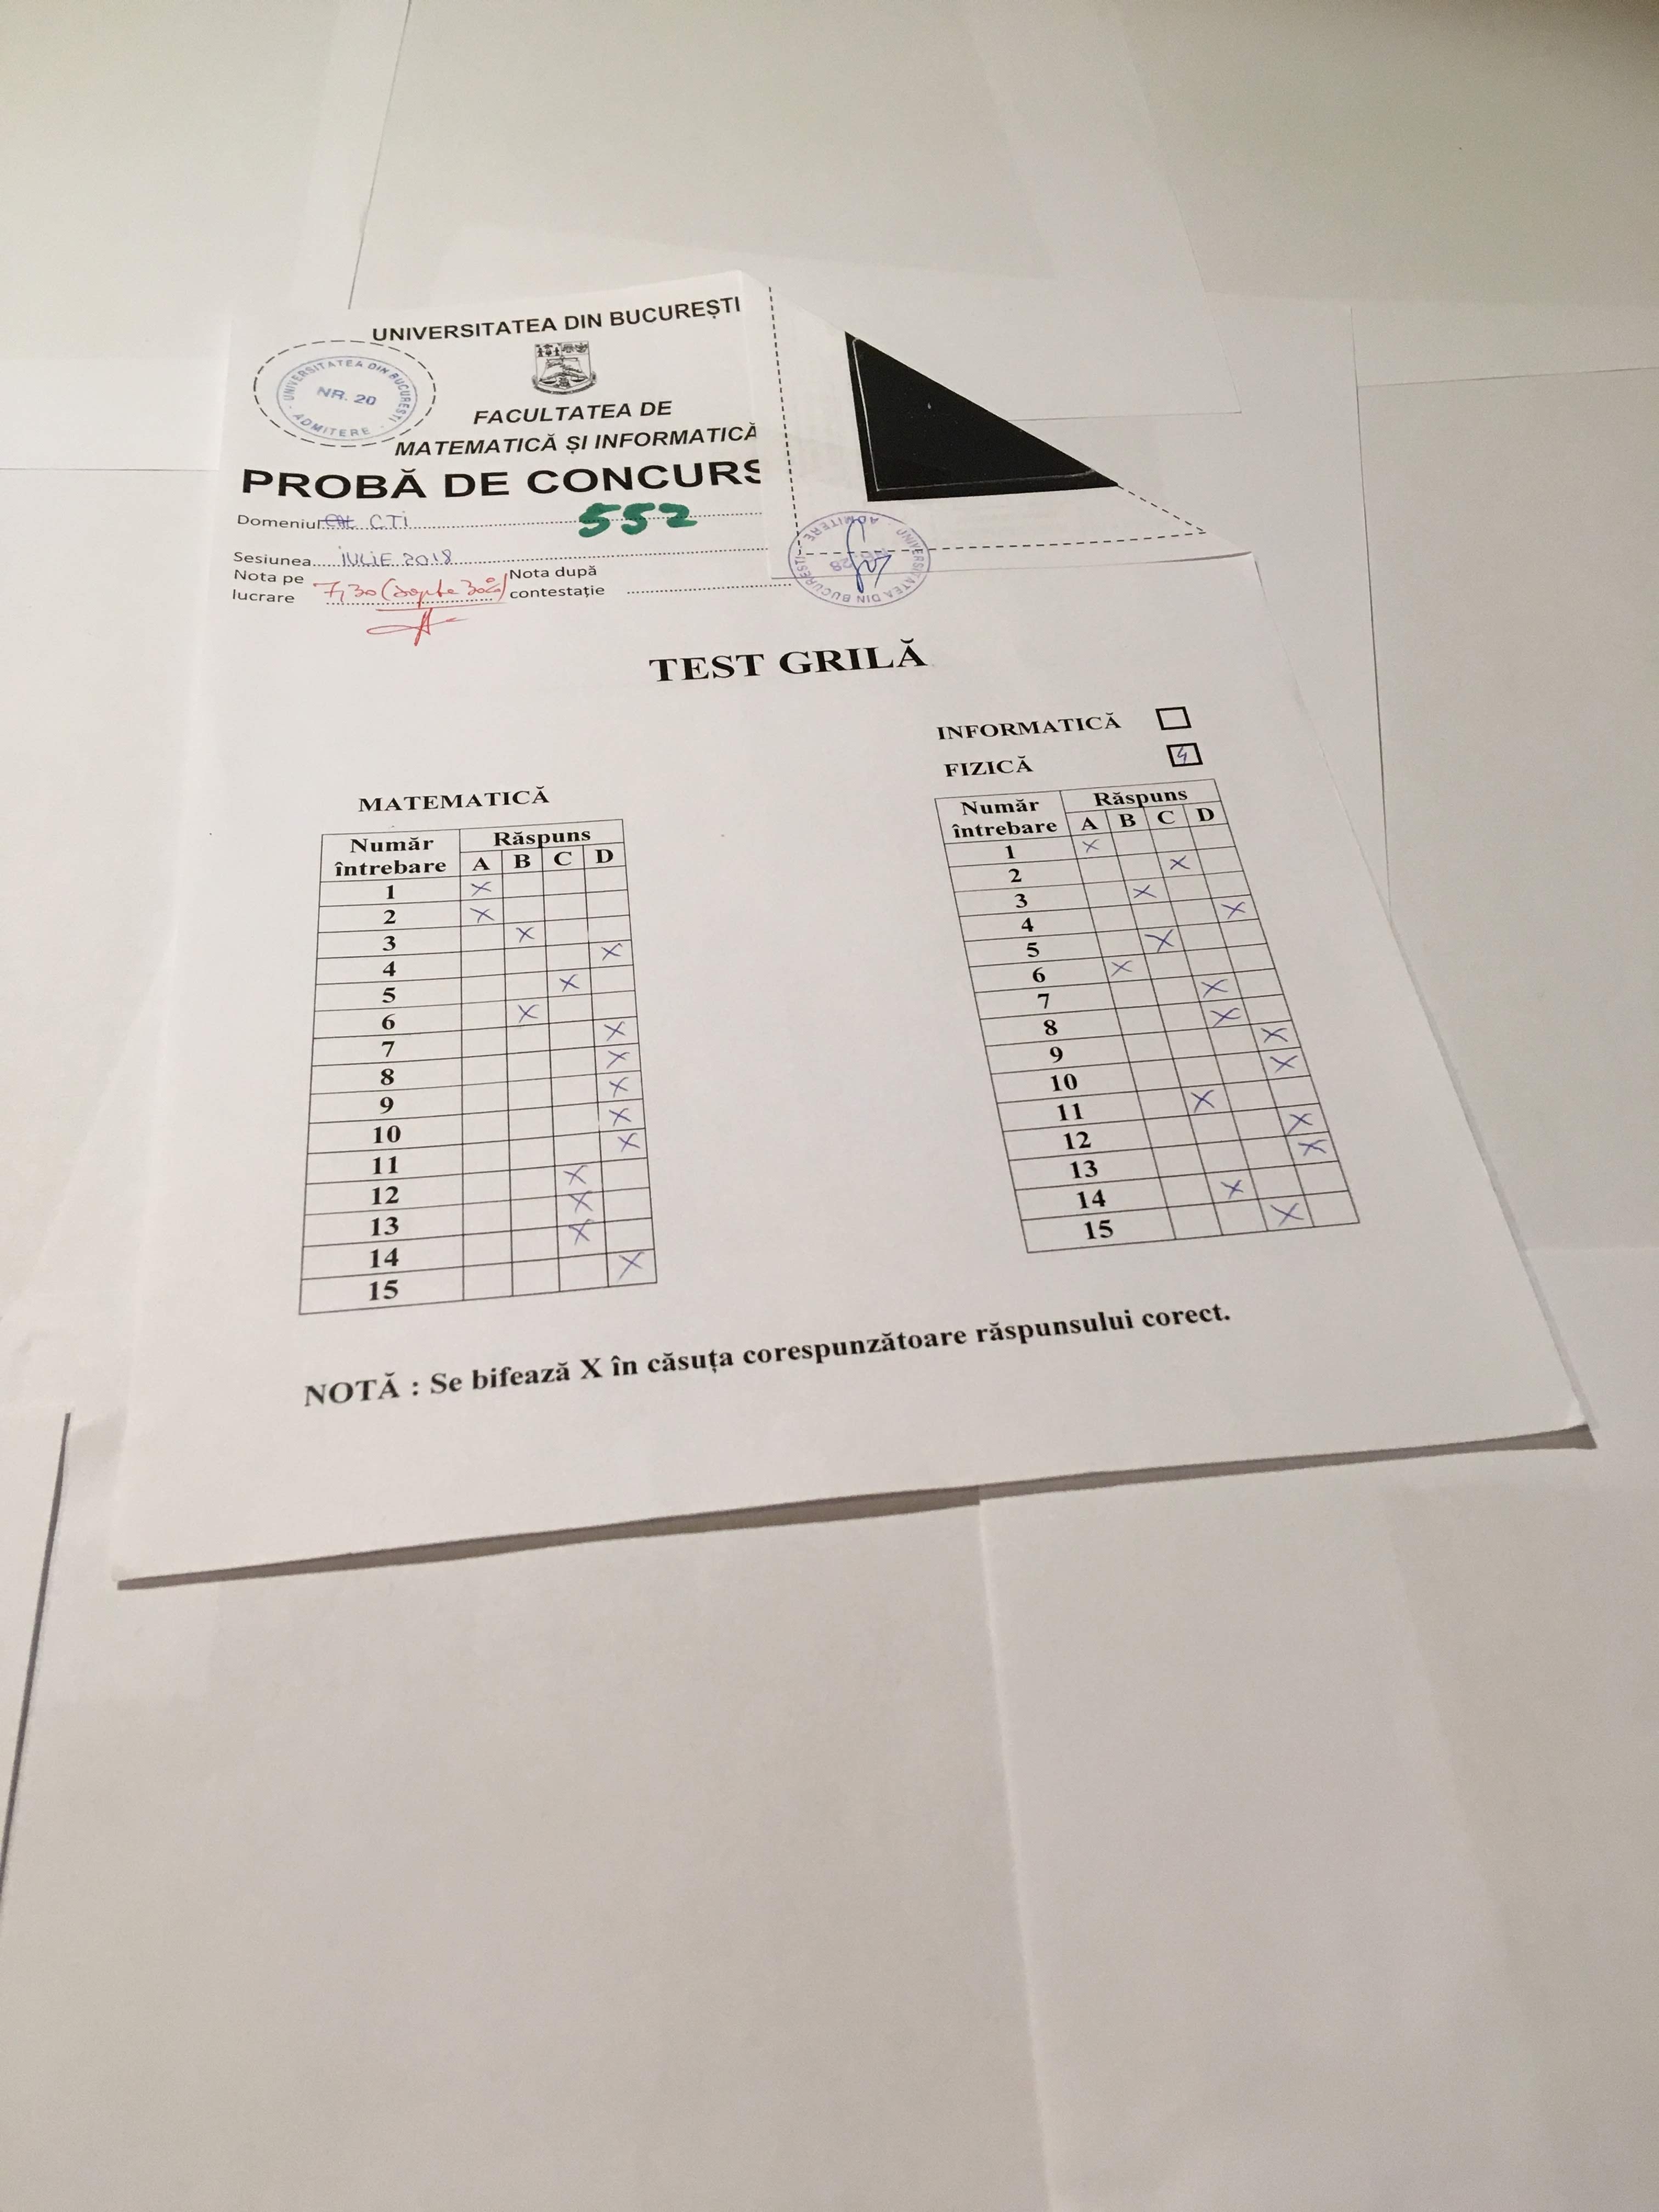 UNIVERSITATEA DIN BUCUREȘTI
UNIVERSITATEA DIN BUCUREȘTI
NR. 20
ADMITERE
FACULTATEA DE
MATEMATICĂ ȘI INFORMATICĂ
PROBĂ DE CONCURS
Domeniul CTI
552
Sesiunea IULIE 2018
Nota pe lucrare 7,30 (șapte 30%)
Nota după contestație
UNIVERSITATEA DIN BUCUREȘTI
ADMITERE
TEST GRILĂ
INFORMATICĂ
FIZICĂ 4
MATEMATICĂ
Număr întrebare Răspuns
A B C D
1 X
2 X
3 X
4 X
5 X
6 X
7 X
8 X
9 X
10 X
11 X
12 X
13 X
14 X
15 X
Număr întrebare Răspuns
A B C D
1 X
2 X
3 X
4 X
5 X
6 X
7 X
8 X
9 X
10 X
11 X
12 X
13 X
14 X
15 X
NOTĂ : Se bifează X în căsuța corespunzătoare răspunsului corect.